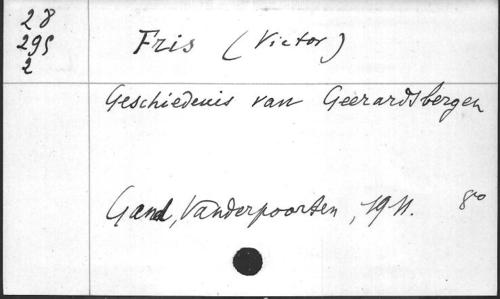 28
295
2
Fris (Victor)
Geschiedenis van Geerardsbergen
Gand, Vanderpoorten, 1911. 8°